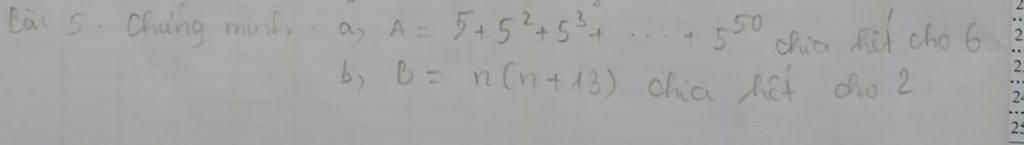 Bài 5. Chứng minh: a, A = 5 + 5² + 5³ + ... + 5⁵⁰ chia hết cho 6
b, B = n(n + 13) chia hết cho 2